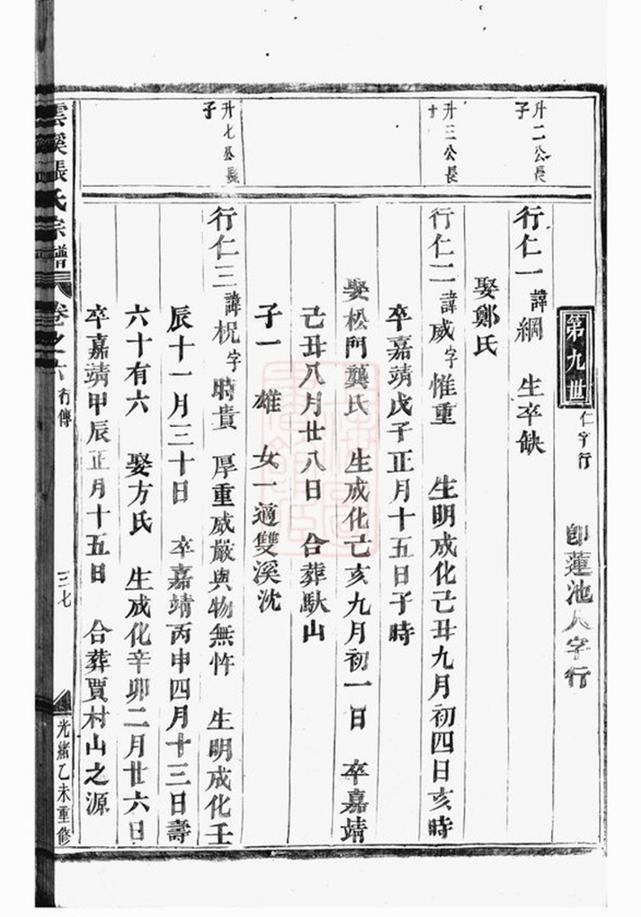 第九世 仁字行 即蓮池人字行
升二公長子
行仁一 諱綱 生卒缺
娶鄭氏
升三公長子
行仁二 諱威 字惟重 生明成化己丑九月初四日亥時
卒嘉靖戊子正月十五日子時
娶松門龔氏 生成化己亥九月初一日 卒嘉靖
己丑八月廿八日 合葬馱山
子一 雄 女一適雙溪沈
升七公長子
行仁三 諱柷 字時貴 厚重威嚴與物無忤 生明成化壬
辰十一月三十日 卒嘉靖丙申四月十三日壽
六十有六 娶方氏 生成化辛卯二月廿六日
卒嘉靖甲辰正月十五日 合葬賈村山之源
雲溪張氏宗譜 卷之六 行傳 三七 光緒乙未重修